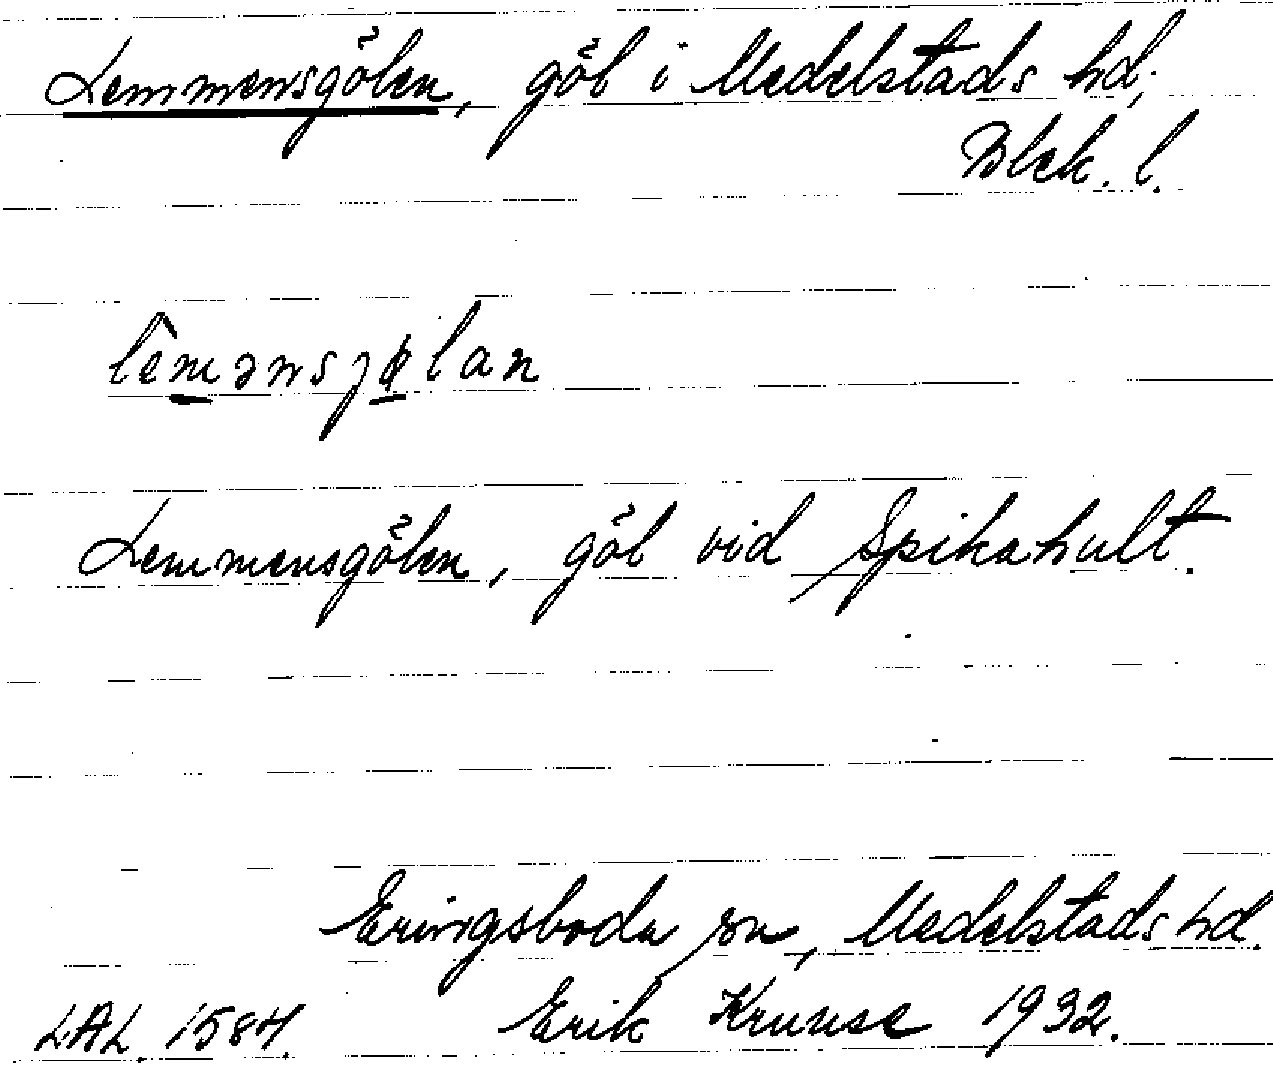 Lemmensgölen, göl i Medelstads hd,
Blek. l.
lêmənsjølan
Lemmensgölen, göl vid Spikahult.
Eringsboda sn, Medelstads hd.
LAL. 1584. Erik Kruuse 1932.